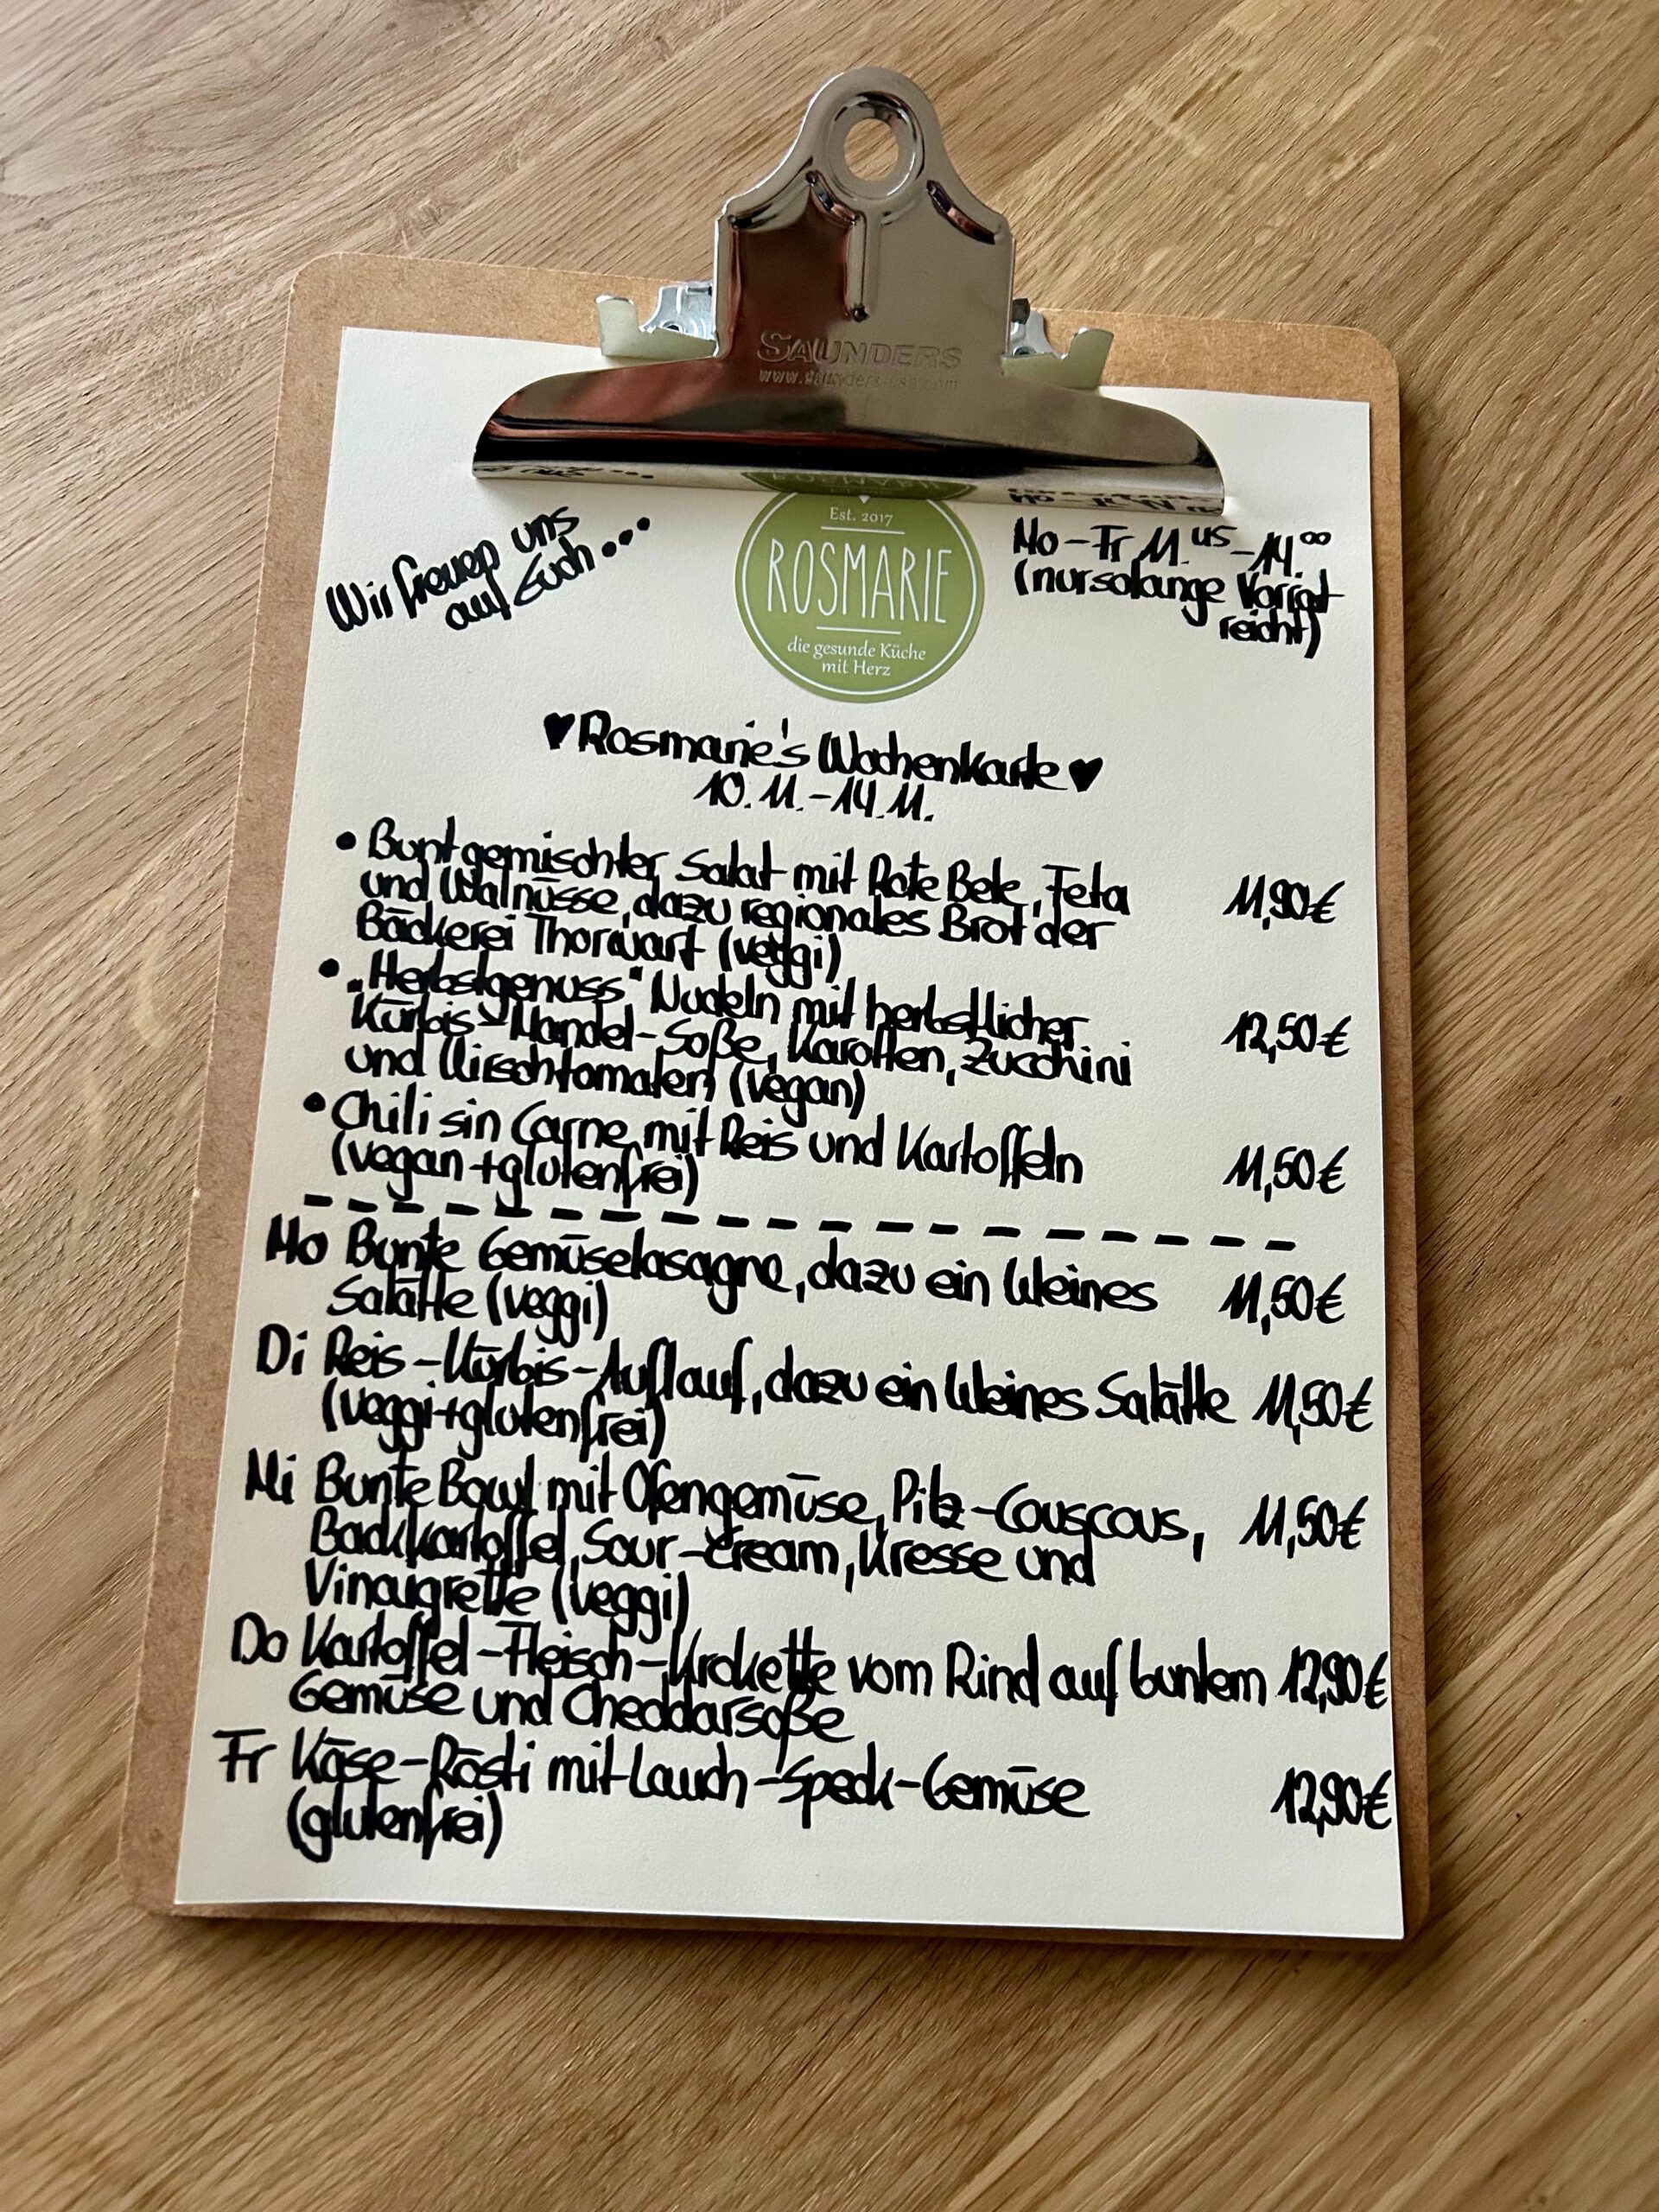 SAUNDERS
www.saunders-usa.com
Wir freuen uns
auf Euch...
Est. 2017
ROSMARIE
die gesunde Küche
mit Herz
Mo-Fr 11.45-14.00
(nur solange Vorrat
reicht)
♥Rosmarie's Wochenkarte♥
10.11.-14.11.
• Bunt gemischter Salat mit Rote Bete, Feta
und Walnüsse, dazu regionales Brot der 11,90€
Bäckerei Thorwart (veggi)
• „Herbstgenuss" Nudeln mit herbstlicher
Kürbis-Mandel-Soße, Karotten, Zucchini 12,50€
und Kirschtomaten (vegan)
• Chili sin Carne mit Reis und Kartoffeln 11,50€
(vegan+glutenfrei)
Mo Bunte Gemüselasagne, dazu ein kleines 11,50€
Salätle (veggi)
Di Reis-Kürbis-Auflauf, dazu ein kleines Salätle 11,50€
(veggi+glutenfrei)
Mi Bunte Bowl mit Ofengemüse, Pilz-Couscous, 11,50€
Backkartoffel, Sour-Cream, Kresse und
Vinaigrette (veggi)
Do Kartoffel-Fleisch-Krokette vom Rind auf buntem 12,90€
Gemüse und Cheddarsoße
Fr Käse-Rösti mit Lauch-Speck-Gemüse 12,90€
(glutenfrei)